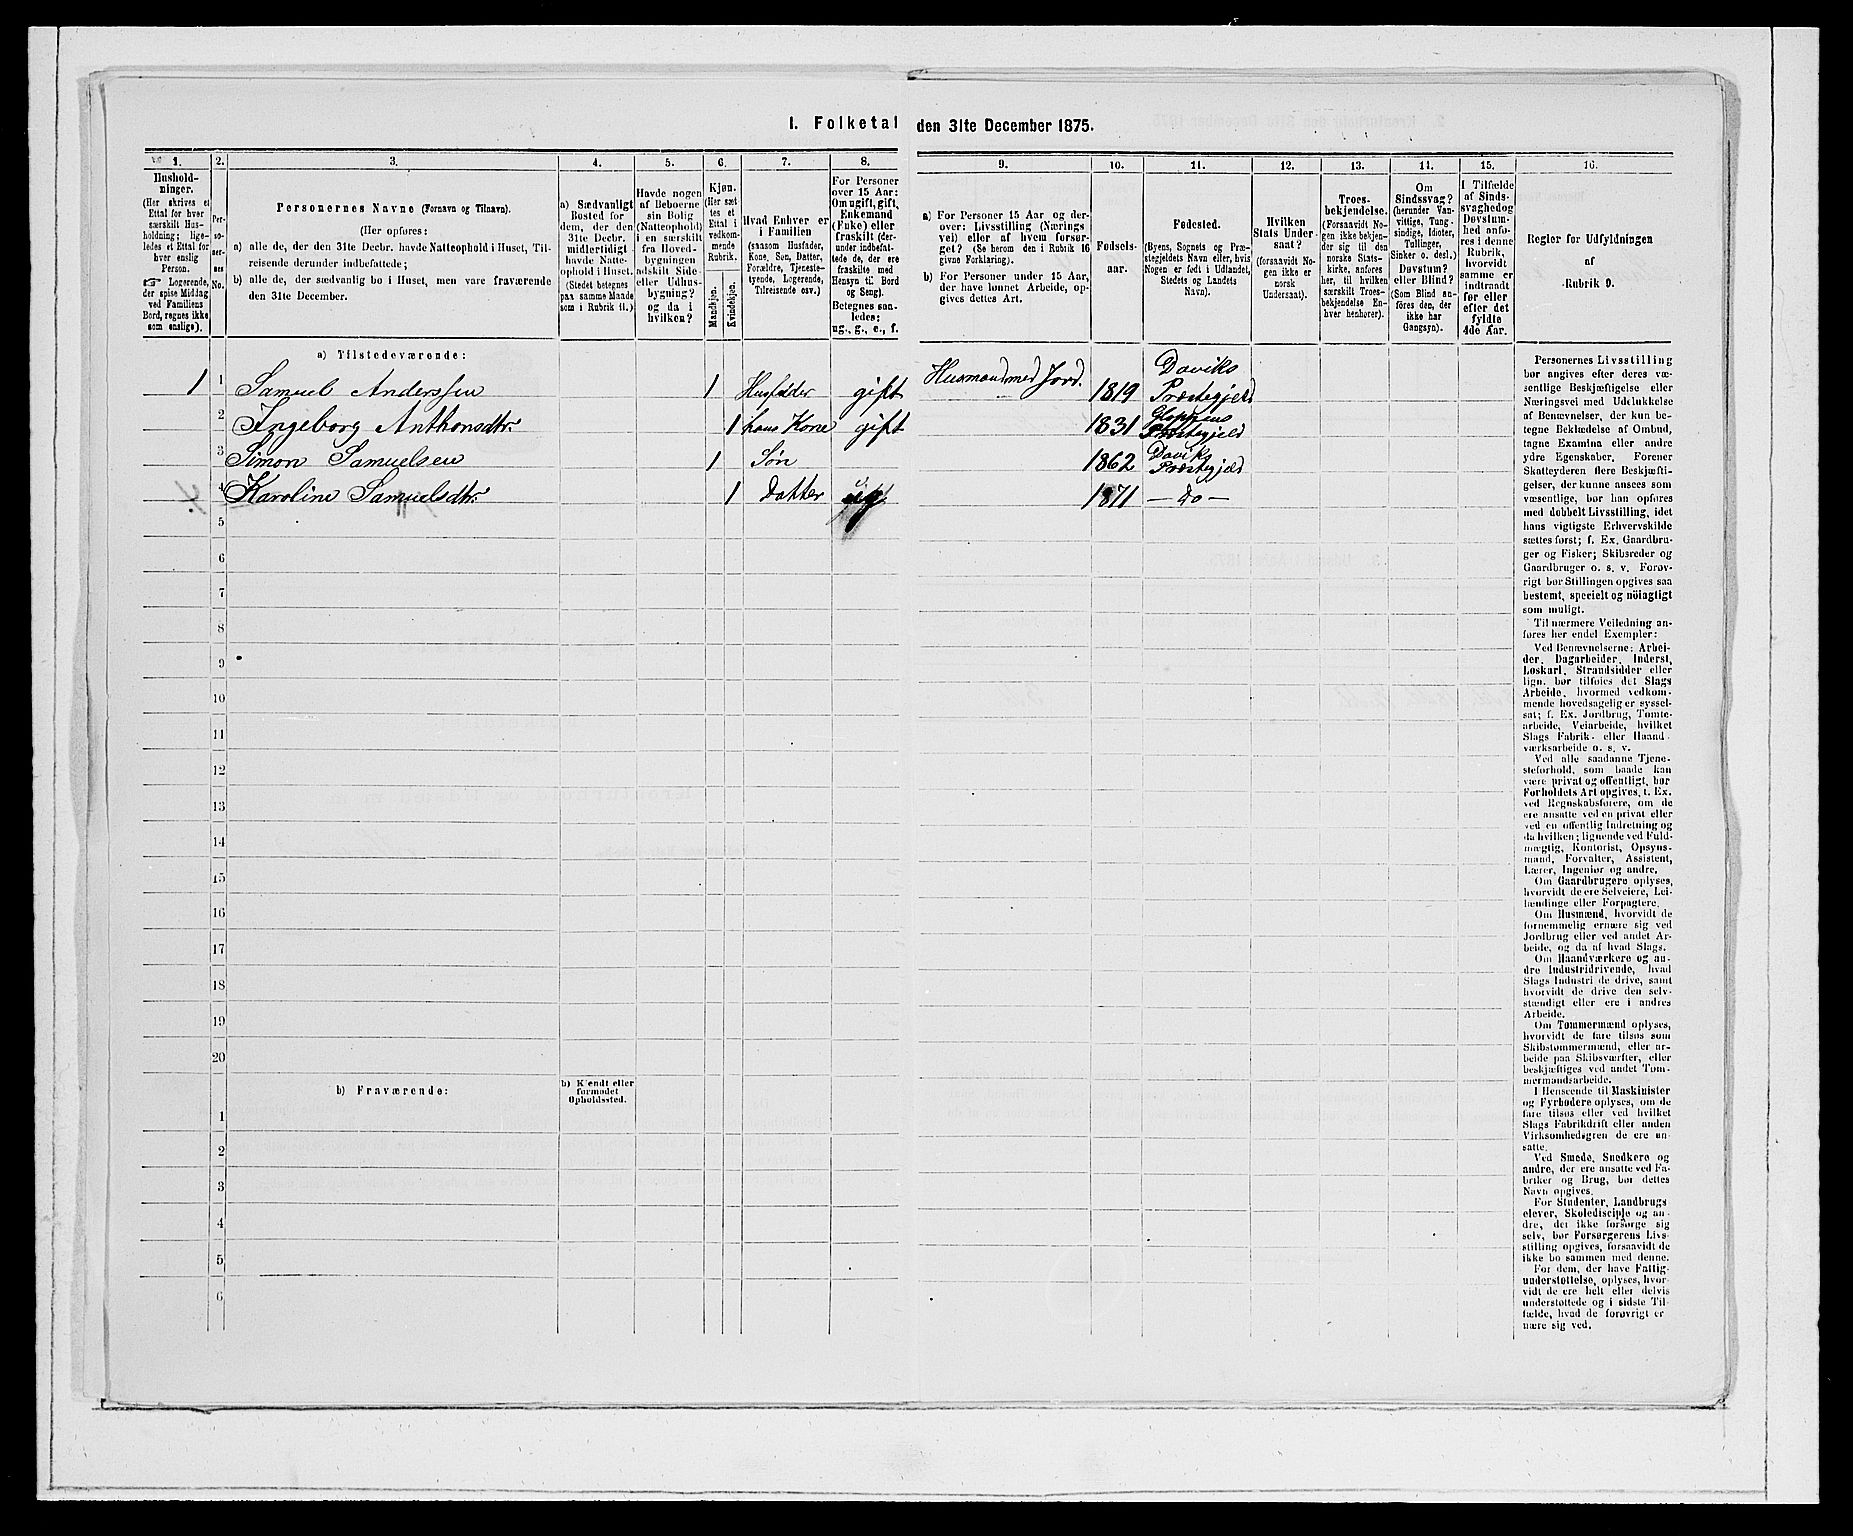 I. Folketal den 31te December 1875.
1.
2.
3.
4.
5.
6.
7.
8.
9.
10.
11.
12.
13.
14.
15.
16.
Hushold-
ninger.
(Her skrives et
Ettal for hver
særskilt Hus-
holdning; lige-
ledes et Ettal for
hver enslig
Person.
Logerende,
der spise Middag
ved Familiens
Bord, regnes ikke
som enslige).
Per-
so-
ner-
nes
No.
Personernes Navne (Fornavn og Tilnavn).
(Her opføres:
a) alle de, der den 31te Decbr. havde Natteophold i Huset, Til-
reisende derunder indbefattede;
b) alle de, der sædvanlig bo i Huset, men vare fraværende
den 31te December.
a) Sædvanligt
Bosted for
dem, der den
31te Decbr.
midlertidigt
havde Natte-
ophold i Huset.
(Stedet betegnes
paa samme Maade
som i Rubrik 11.)
Havde nogen
af Beboerne
sin Bolig
(Natteophold)
i en særskilt
fra Hoved-
bygningen
adskilt Side-
eller Udhus-
bygning?
og da i
hvilken?
Kjøn.
(Her sæt-
tes et
Ettal i
vedkom-
mende
Rubrik.
Mandkjøn.
Kvindekjøn.
Hvad Enhver er
i Familien
(saasom Husfader,
Kone, Søn, Datter,
Forældre, Tjeneste-
tyende, Logerende,
Tilreisende osv.)
For Personer
over 15 Aar:
Om ugift, gift,
Enkemand
(Enke) eller
fraskilt (der-
under indbefat-
tede de, der ere
fraskilte med
Hensyn til Bord
og Seng).
Betegnes saa-
ledes:
ug., g., e., f.
a) For Personer 15 Aar og der-
over: Livsstilling (Nærings-
vei) eller af hvem forsør-
get? (Se herom den i Rubrik 16
givne Forklaring).
b) For Personer under 15 Aar,
der have lønnet Arbeide, op-
gives dettes Art.
Fødsels-
aar.
Fødested.
(Byens, Sognets og Præ-
stegjeldets Navn eller, hvis
Nogen er født i Udlandet,
Stedets og Landets
Navn).
Hvilken
Stats Under-
saat?
(forsaavidt No-
gen ikke er
norsk
Undersaat).
Troes-
bekjendelse.
(Forsaavidt No-
gen ikke bekjen-
der sig til den
norske Stats-
kirke, anføres
her, til hvilken
særskilt Troes-
bekjendelse En-
hver henhører).
Om
Sindssvag?
(herunder Van-
vittige, Tung-
sindige, Idioter,
Tullinger,
Sinker o. desl.)
Døvstum?
eller Blind?
(Som Blind an-
føres den, der
ikke har
Gangsyn).
I Tilfælde
af Sinds-
svaghed og
Døvstum-
hed anfø-
res i denne
Rubrik,
hvorvidt
samme er
indtraadt
før eller
efter det
fyldte
4de Aar.
Regler for Udfyldningen
af
Rubrik 9.
a) Tilstedeværende:
1 1 Samuel Anderssen 1 Husfader gift Husmand med Jord. 1819 Daviks Præstegjeld
2 Ingeborg Anthonsdtr. 1 hans Kone gift 1831 Gloppens Præstegjeld
3 Simon Samuelsen 1 Søn 1862 Daviks Præstegjeld
4 Karoline Samuelsdtr. 1 Datter 1871 — do —
5
6
7
8
9
10
11
12
13
14
15
16
17
18
19
20
b) Fraværende:
b) Kjendt eller
formodet
Opholdssted.
1
2
3
4
5
6
Personernes Livsstilling
bør angives efter deres væ-
sentlige Beskjæftigelse eller
Næringsvei med Udelukkelse
af Benævnelser, der kun be-
tegne Beklædelse af Ombud,
tagne Examina eller andre
ydre Egenskaber. Forener
Skatteyderen flere Beskjæfti-
gelser, der kunne ansees som
væsentlige, bør han opføres
med dobbelt Livsstilling, idet
hans vigtigste Erhvervskilde
sættes først; f. Ex. Gaardbru-
ger og Fisker; Skibsreder og
Gaardbruger o. s. v. Forøv-
rigt bør Stillingen opgives saa
bestemt, specielt og nøiagtigt
som muligt.
Til nærmere Veiledning an-
føres her endel Exempler:
Ved Benævnelserne: Arbei-
der, Dagarbeider, Inderst,
Løskarl, Strandsidder eller
lign. bør tilføies det Slags
Arbeide, hvormed vedkom-
mende hovedsagelig er syssel-
sat; f. Ex. Jordbrug, Tomte-
arbeide, Veiarbeide, hvilket
Slags Fabrik- eller Haand-
værksarbeide o. s. v.
Ved alle saadanne Tjene-
steforhold, som baade kan
være privat og offentligt, bør
Forholdets Art opgives, t. Ex.
ved Regnskabsførere, om de
ere ansatte ved en privat eller
ved en offentlig Indretning og
da hvilken; lignende ved Fuld-
mægtig, Kontorist, Opsyns-
mand, Forvalter, Assistent,
Lærer, Ingeniør og andre.
Om Gaardbrugere oplyses,
hvorvidt de ere Selveiere, Lei-
lændinge eller Forpagtere.
Om Husmænd, hvorvidt de
fornemmelig ernære sig ved
Jordbrug eller ved andet Ar-
beide, og da af hvad Slags.
Om Haandværkere og an-
dre Industridrivende, hvad
Slags Industri de drive, samt
hvorvidt de drive den selv-
stændigt eller ere i andres
Arbeide.
Om Tømmermænd oplyses,
hvorvidt de fare tilsøs som
Skibstømmermænd, eller ar-
beide paa Skibsværfter, eller
beskjæftiges ved andet Tøm-
mermandsarbeide.
I Henseende til Maskinister
og Fyrbødere oplyses, om de
fare tilsøs eller ved hvilket
Slags Fabrikdrift eller anden
Virksomhedsgren de ere an-
satte.
Ved Smede, Snedkere og
andre, der ere ansatte ved Fa-
briker og Brug, bør dettes
Navn opgives.
For Studenter, Landbrugs-
elever, Skoledisciple og an-
dre, der ikke forsørge sig
selv, bør Forsørgerens Livs-
stilling opgives, forsaavidt de
ikke bo sammen med denne.
For dem, der have Fattig-
understøttelse, oplyses, hvor-
vidt de ere helt eller delvis
understøttede og i sidste Til-
fælde, hvad de forøvrigt er-
nære sig ved.